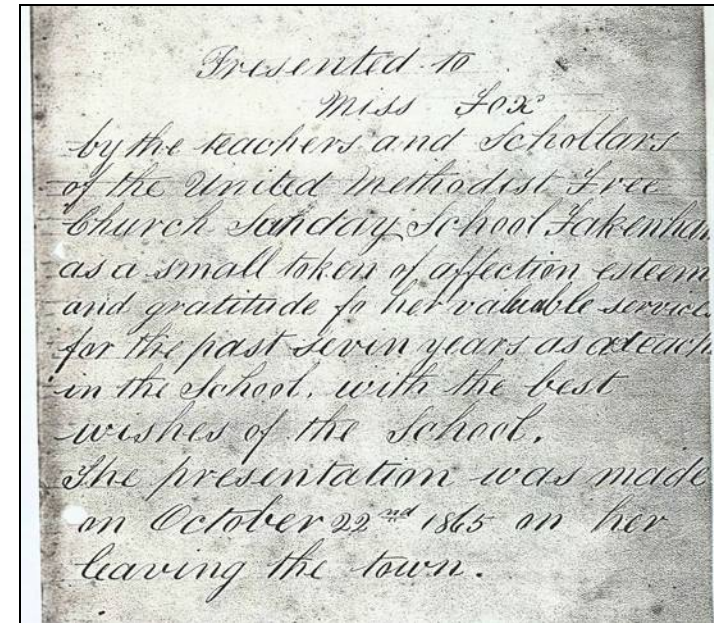 Presented to
Miss Fox
by the teachers and Schollars
of the United Methodist Free
Church Sunday School Fakenham
as a small token of affection esteem
and gratitude fo her valuable service
for the past seven years as a teach
in the School, with the best
wishes of the School.
The presentation was made
on October 22nd 1865 on her
leaving the town.